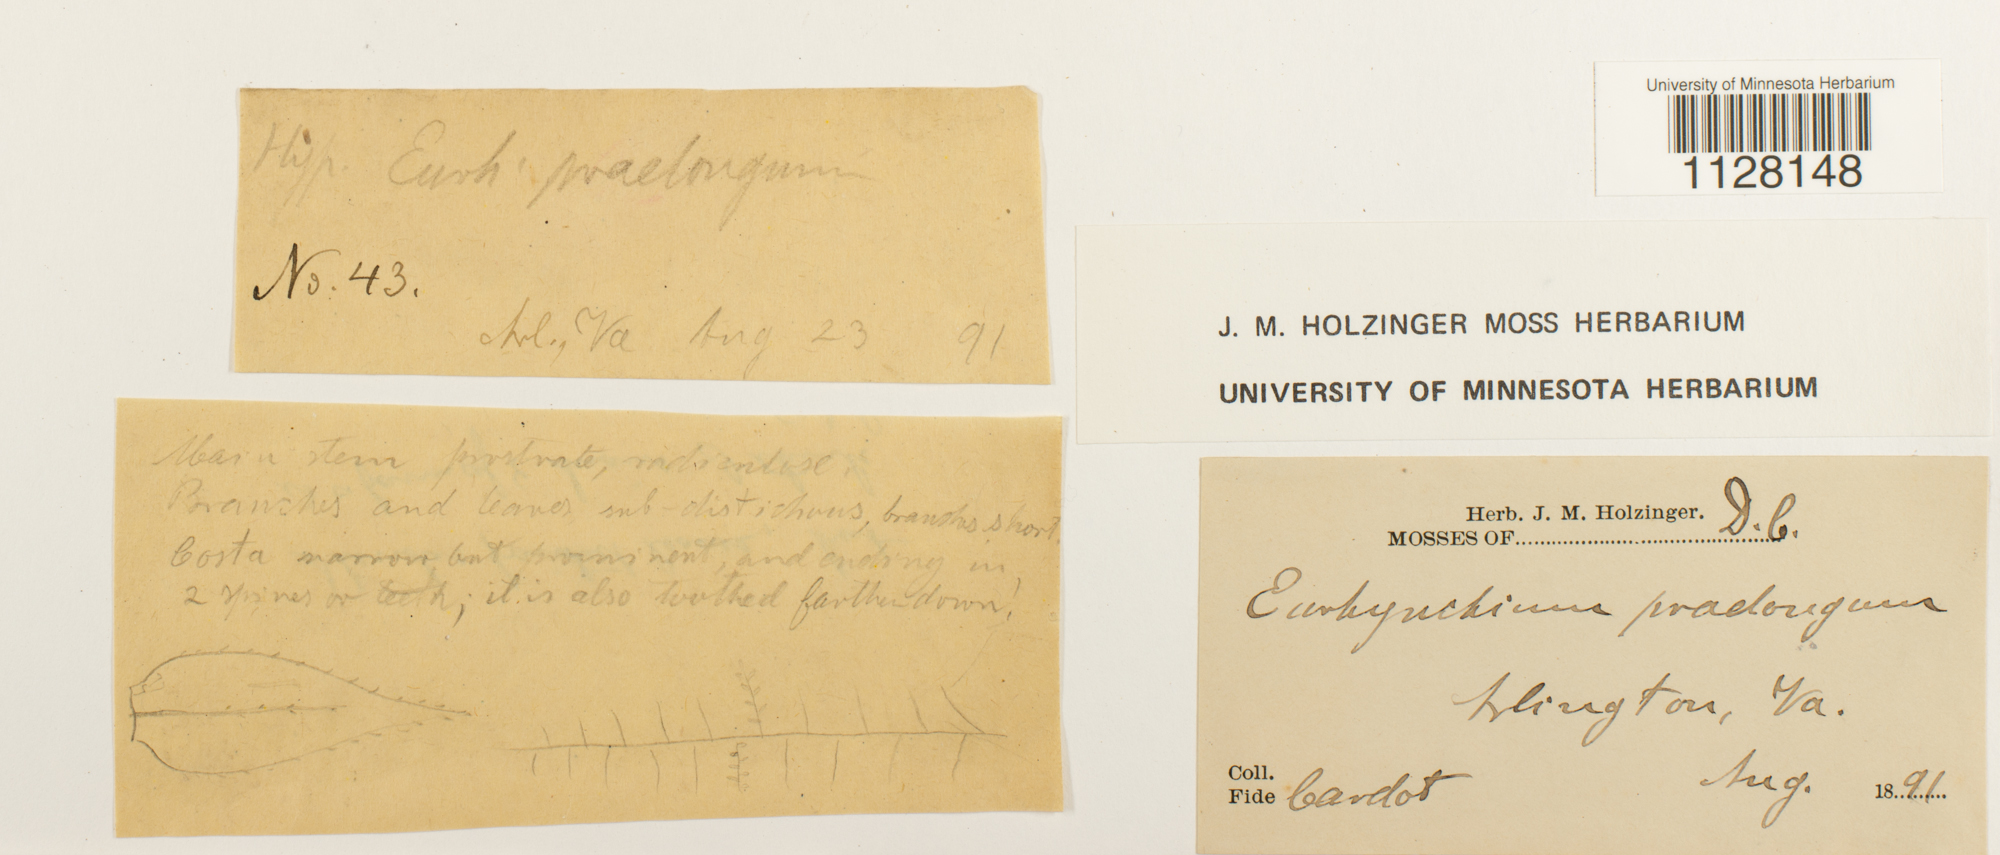 Hyp. Eurh. praelongum
No. 43.
Arl., Va Aug 23 91
Main stem prostrate, radiculose.
Branches and leaves sub-distichous, branches short.
Costa narrow but prominent, and ending in
2 spines or teeth; it is also toothed farther down!
University of Minnesota Herbarium
1128148
J. M. HOLZINGER MOSS HERBARIUM
UNIVERSITY OF MINNESOTA HERBARIUM
Herb. J. M. Holzinger.
MOSSES OF D.C.
Eurhynchium praelongum
Arlington, Va.
Aug. 1891
Coll.
Fide Cardot